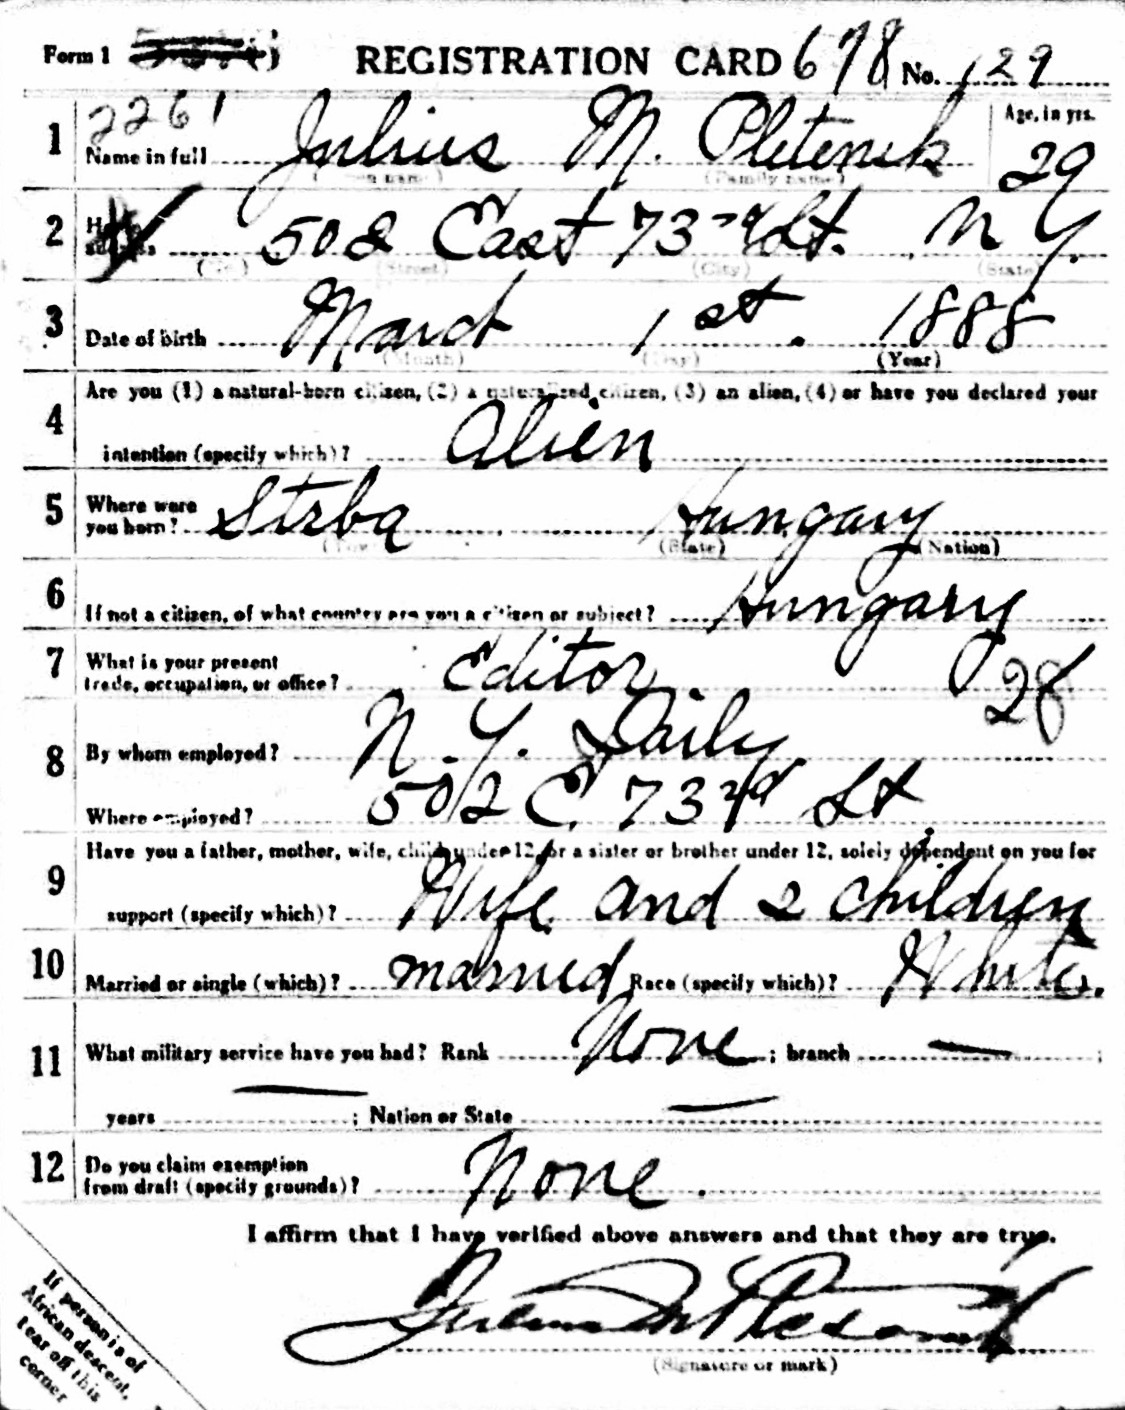 Form 1 REGISTRATION CARD 678 No. 129
2261
1 Name in full Julius M. Pletenik Age, in yrs. 29
(Family name)
2 502 East 73rd St. N Y.
(Street) (City) (State)
3 Date of birth March 1st. 1888
(Month) (Day) (Year)
4 Are you (1) a natural-born citizen, (2) a naturalized citizen, (3) an alien, (4) or have you declared your
intention (specify which)? Alien
5 Where were you born? Strba Hungary
(Town) (State) (Nation)
6 If not a citizen, of what country are you a citizen or subject? Hungary
7 What is your present trade, occupation, or office? Editor. 28
8 By whom employed? N.Y. Daily
Where employed? 502 E. 73rd St
9 Have you a father, mother, wife, child under 12, or a sister or brother under 12, solely dependent on you for
support (specify which)? Wife and 2 children
10 Married or single (which)? married Race (specify which)? White.
11 What military service have you had? Rank None ; branch — ;
years — ; Nation or State —
12 Do you claim exemption from draft (specify grounds)? None.
I affirm that I have verified above answers and that they are true.
(Signature or mark)
If person is of
African descent,
tear off this
corner